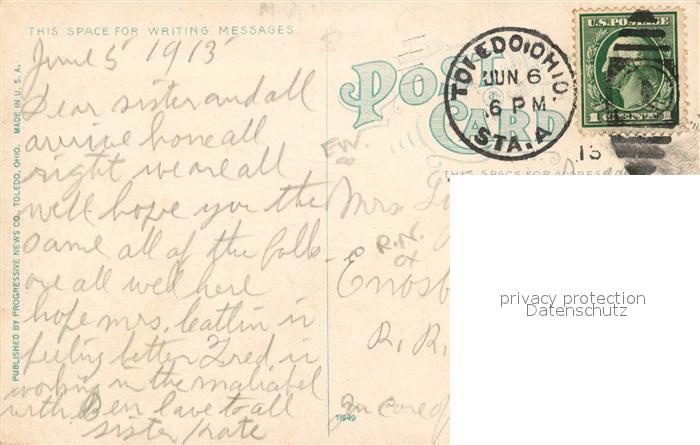 THIS SPACE FOR WRITING MESSAGES
June 5 1913
Dear sister and all
arrive home all
right we are all
well hope you the
same all of the folks
are all well here
hope Mrs. Catlin is
feeling better Fred is
working in the
with Ben love to all
sister Kate
PUBLISHED BY PROGRESSIVE NEWS CO., TOLEDO, OHIO. MADE IN U. S. A.
POST CARD
TOLEDO, OHIO.
JUN 6
6 PM
STA. A
13
U.S. POSTAGE
1 CENT 1
THIS SPACE FOR ADDRESS
E.W.
Mrs.
R.N.
Enosb
R. R.
In care of
11949
privacy protection
Datenschutz